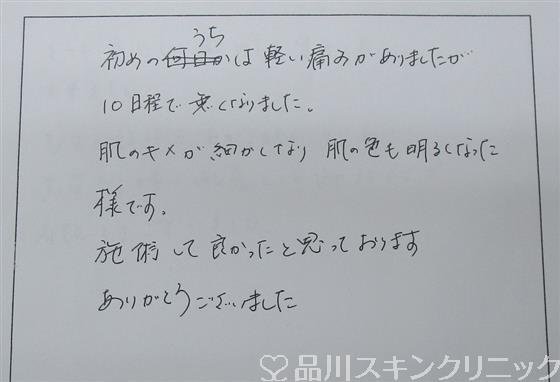 うち
初めの何日かは軽い痛みがありましたが
10日程で無くなりました。
肌のキメが細かくなり 肌の色も明るくなった
様です。
施術して良かったと思っております
ありがとうございました
品川スキンクリニック